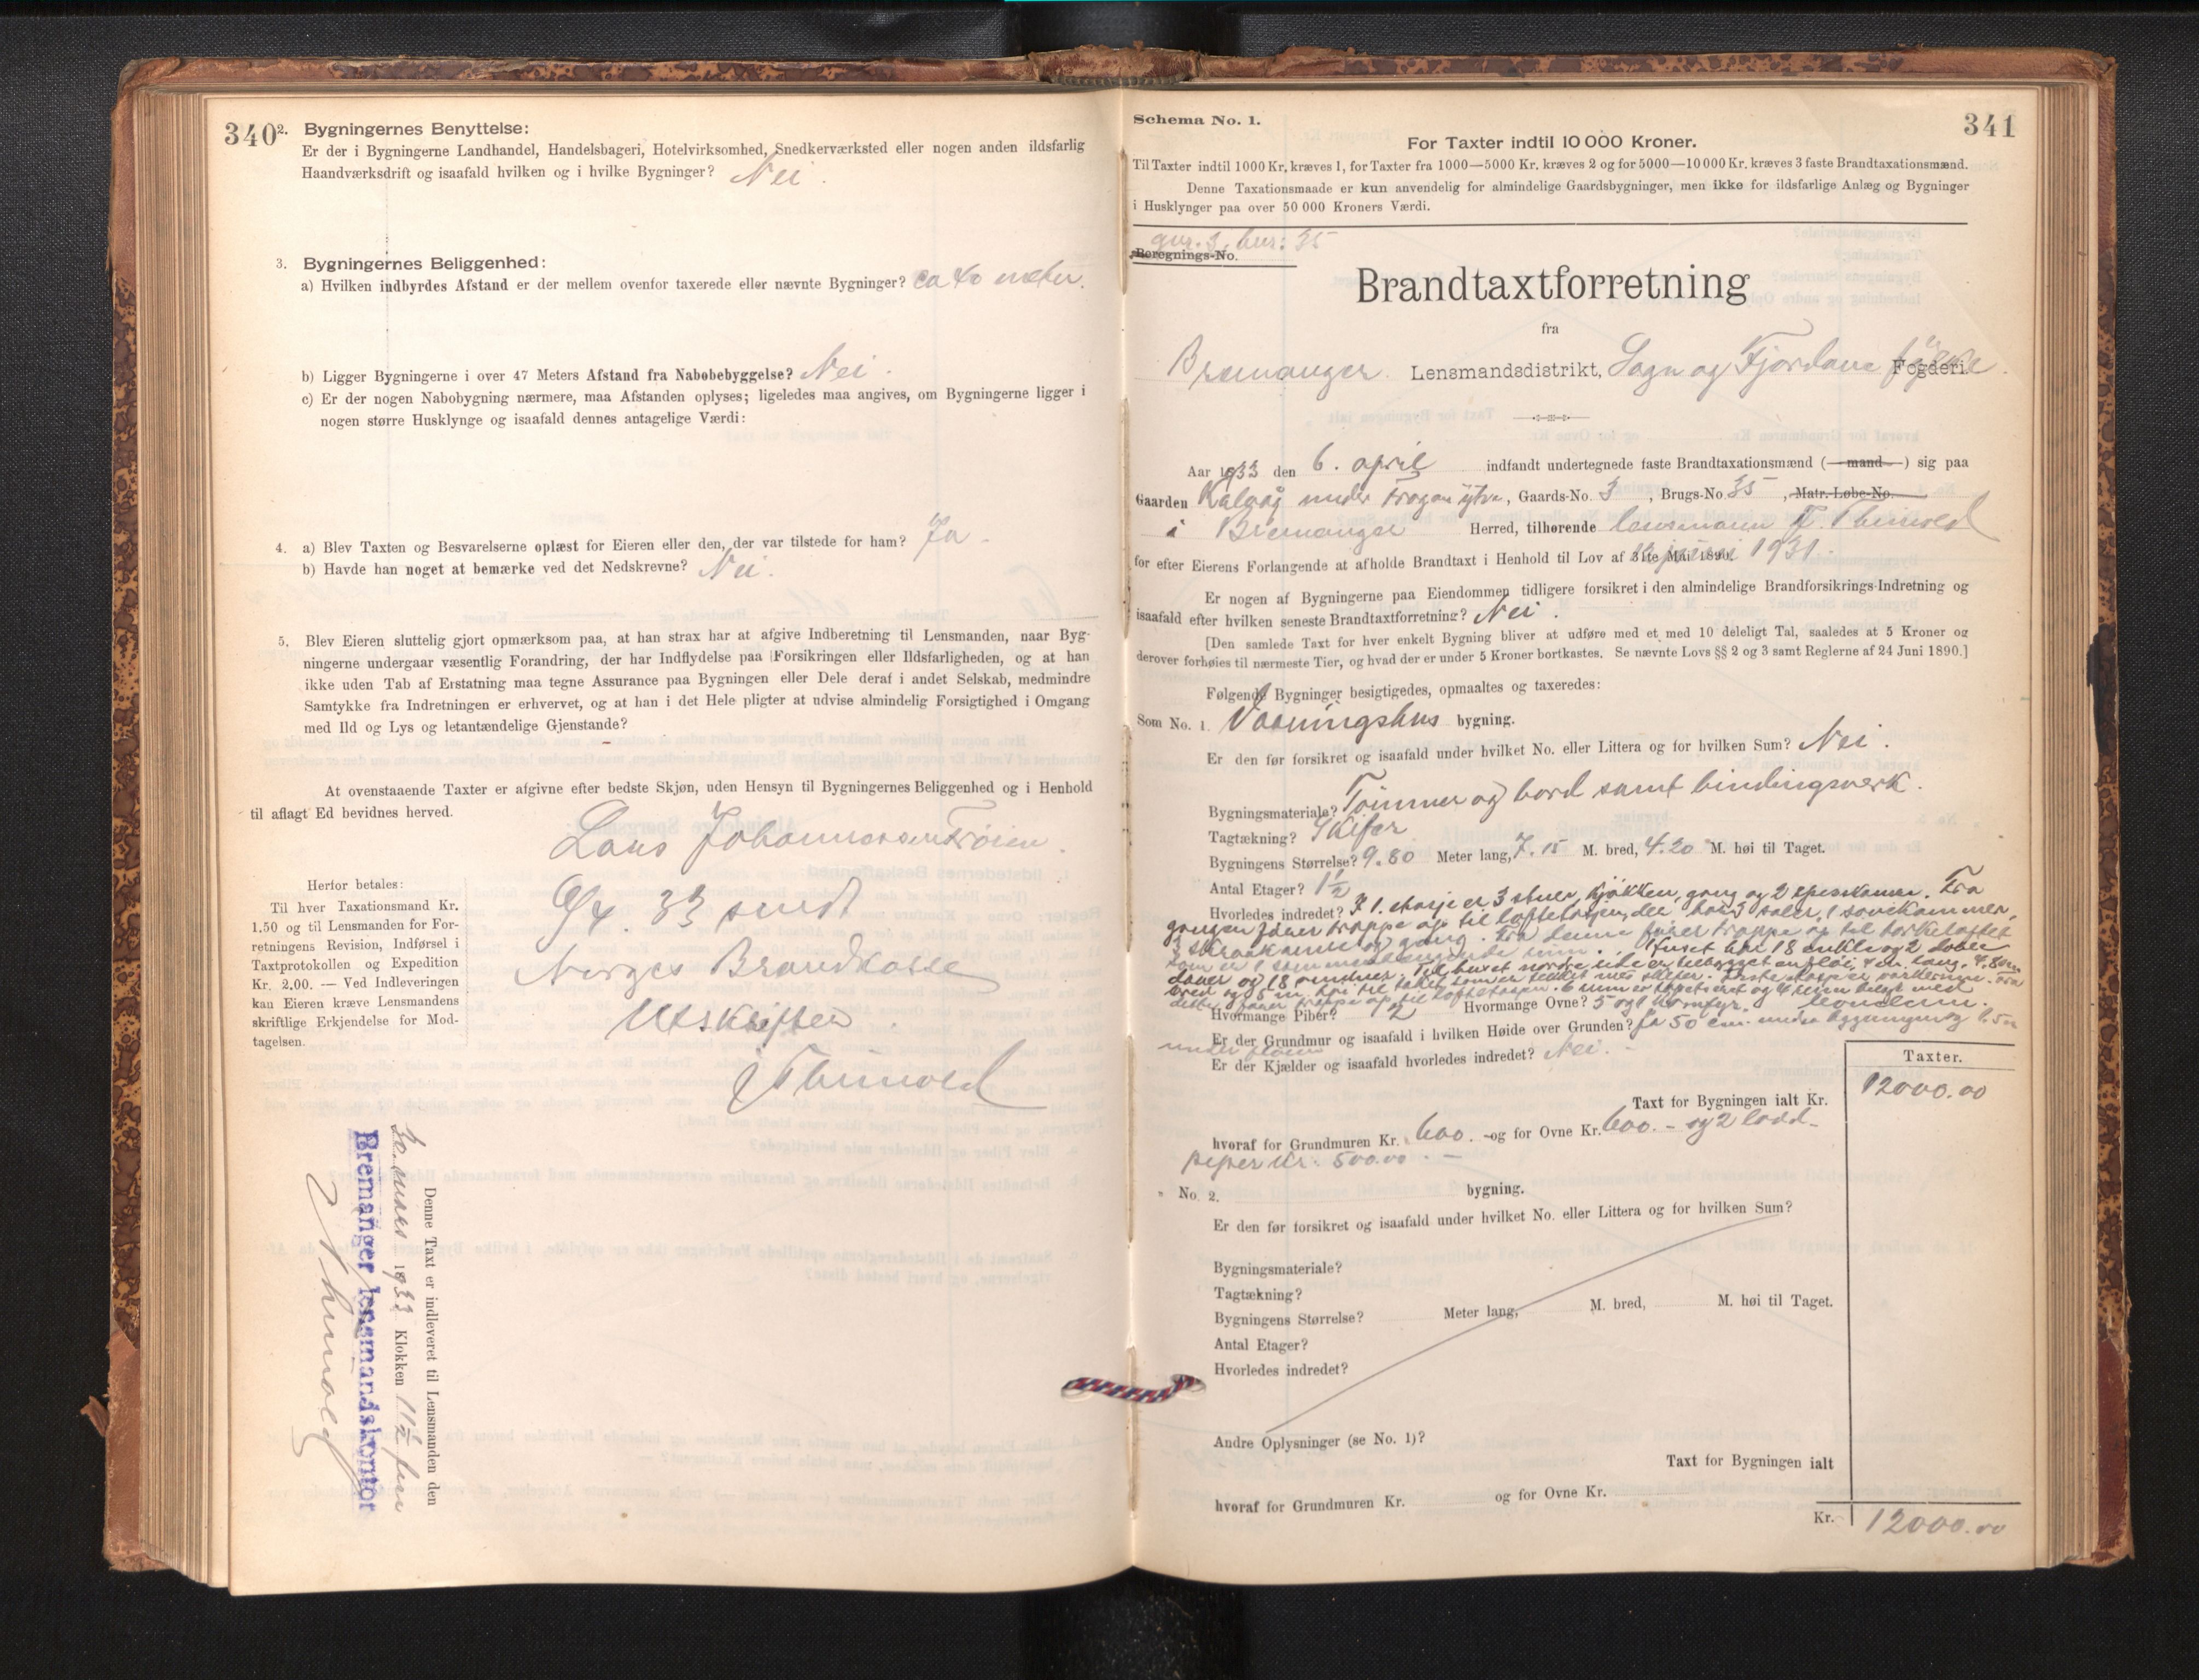 340
2. Bygningernes Benyttelse:
Er der i Bygningerne Landhandel, Handelsbageri, Hotelvirksomhed, Snedkerværksted eller nogen anden ildsfarlig
Haandværksdrift og isaafald hvilken og i hvilke Bygninger? Nei.
3. Bygningernes Beliggenhed:
a) Hvilken indbyrdes Afstand er der mellem ovenfor taxerede eller nævnte Bygninger? ca 40 meter.
b) Ligger Bygningerne i over 47 Meters Afstand fra Nabobebyggelse? Nei.
c) Er der nogen Nabobygning nærmere, maa Afstanden oplyses; ligeledes maa angives, om Bygningerne ligger i
nogen større Husklynge og isaafald dennes antagelige Værdi:
4. a) Blev Taxten og Besvarelserne oplæst for Eieren eller den, der var tilstede for ham? Ja.
b) Havde han noget at bemærke ved det Nedskrevne? Nei.
5. Blev Eieren sluttelig gjort opmærksom paa, at han strax har at afgive Indberetning til Lensmanden, naar Byg-
ningerne undergaar væsentlig Forandring, der har Indflydelse paa Forsikringen eller Ildsfarligheden, og at han
ikke uden Tab af Erstatning maa tegne Assurance paa Bygningen eller Dele deraf i andet Selskab, medmindre
Samtykke fra Indretningen er erhvervet, og at han i det Hele pligter at udvise almindelig Forsigtighed i Omgang
med Ild og Lys og letantændelige Gjenstande?
At ovenstaaende Taxter er afgivne efter bedste Skjøn, uden Hensyn til Bygningernes Beliggenhed og i Henhold
til aflagt Ed bevidnes herved.
Lars Johannessen Frøien.
Herfor betales:
Til hver Taxationsmand Kr.
1.50 og til Lensmanden for For-
retningens Revision, Indførsel i
Taxtprotokollen og Expedition
Kr. 2.00. — Ved Indleveringen
kan Eieren kræve Lensmandens
skriftlige Erkjendelse for Mod-
tagelsen.
6/4. 33 sendt
Norges Brandkasse
Utskriften.
Thinvold
Denne Taxt er indleveret til Lensmanden den
1933 Klokken 11½ fm
Bremanger lensmandskontor
Thinvold
341
Schema No. 1.
For Taxter indtil 10 000 Kroner.
Til Taxter indtil 1000 Kr. kræves 1, for Taxter fra 1000—5000 Kr. kræves 2 og for 5000—10 000 Kr. kræves 3 faste Brandtaxationsmænd.
Denne Taxationsmaade er kun anvendelig for almindelige Gaardsbygninger, men ikke for ildsfarlige Anlæg og Bygninger
i Husklynger paa over 50 000 Kroners Værdi.
gnr. 3, bnr: 35
Beregnings-No.
Brandtaxtforretning
fra
Bremanger Lensmandsdistrikt, Sogn og Fjordane fylke Fogderi.
Aar 1933 den 6. april indfandt undertegnede faste Brandtaxationsmænd (mand) sig paa
Gaarden Kalvåg under Frøyen ytre, Gaards-No. 3, Brugs-No. 35, Matr.-Løbe-No.
i Bremanger Herred, tilhørende lensmann Thinvold
for efter Eierens Forlangende at afholde Brandtaxt i Henhold til Lov af 31te Mai 1890. juni 1931.
Er nogen af Bygningerne paa Eiendommen tidligere forsikret i den almindelige Brandforsikrings-Indretning og
isaafald efter hvilken seneste Brandtaxtforretning? Nei.
[Den samlede Taxt for hver enkelt Bygning bliver at udføre med et med 10 deleligt Tal, saaledes at 5 Kroner og
derover forhøies til nærmeste Tier, og hvad der er under 5 Kroner bortkastes. Se nævnte Lovs §§ 2 og 3 samt Reglerne af 24 Juni 1890.]
Følgende Bygninger besigtigedes, opmaaltes og taxeredes:
Som No. 1. Vaaningshus bygning.
Er den før forsikret og isaafald under hvilket No. eller Littera og for hvilken Sum? Nei.
Bygningsmateriale? Tømmer og bord samt bindingsverk.
Tagtækning? Skifer
Bygningens Størrelse? 9.80 Meter lang, 7.15 M. bred, 4.20 M. høi til Taget.
Antal Etager? 1½
Hvorledes indredet? I 1. etasje er 3 stuer, kjøkken, gang og 2 spiskamer. Fra
gangen fører trappe op til loftetasjen, der har 3 saler, 1 sovekammer,
3 skraakamre og gang. Fra denne fører trappe op til tørkeloftet
som er 1 sammenhengende rom. Huset har 18 enkle og 2 doble
dører og 18 vinduer.
Hvormange Piber? 2 Hvormange Ovne? 5 og 1 komfyr.
Er der Grundmur og isaafald i hvilken Høide over Grunden? Ja 50 cm. under bygningen og 1.5 m
under fløien
Er der Kjælder og isaafald hvorledes indredet? Nei.
Taxter.
Taxt for Bygningen ialt Kr. 12000.00
hvoraf for Grundmuren Kr. 600.- og for Ovne Kr. 600.- og 2 ladd-
piper kr. 500.00
No. 2. bygning.
Er den før forsikret og isaafald under hvilket No. eller Littera og for hvilken Sum?
Bygningsmateriale?
Tagtækning?
Bygningens Størrelse? Meter lang, M. bred, M. høi til Taget.
Antal Etager?
Hvorledes indredet?
Andre Oplysninger (se No. 1)?
Taxt for Bygningen ialt
hvoraf for Grundmuren Kr. og for Ovne Kr.
Kr. 12000.00